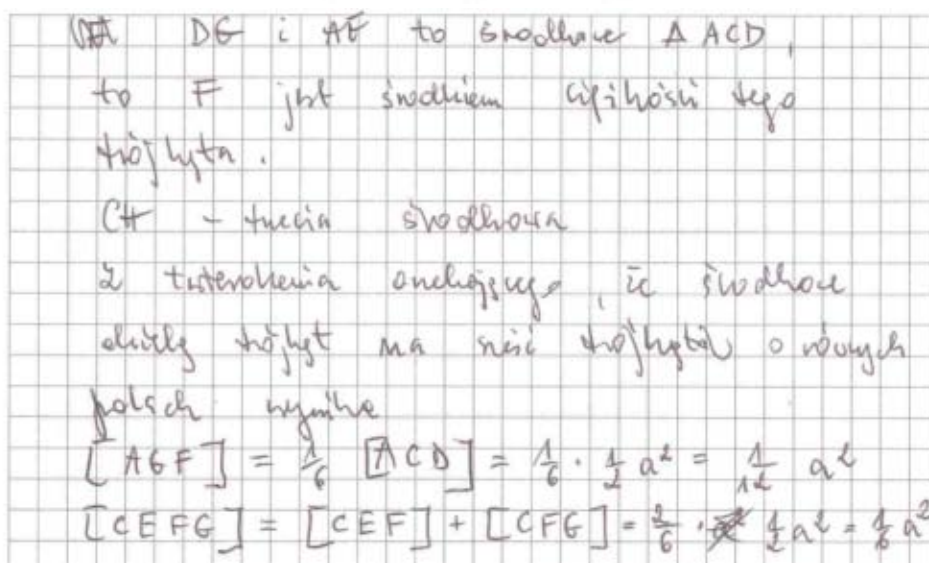 DG i AE to środkowe Δ ACD,
to F jest środkiem ciężkości tego
trójkąta.
CH - trzecia środkowa
Z twierdzenia orzekającego, że środkowe
dzielą trójkąt na sześć trójkątów o równych
polach wynika
[AGF] = 1/6 [ACD] = 1/6 · 1/2 a² = 1/12 a²
[CEFG] = [CEF] + [CFG] = 2/6 · 1/2 a² = 1/6 a²